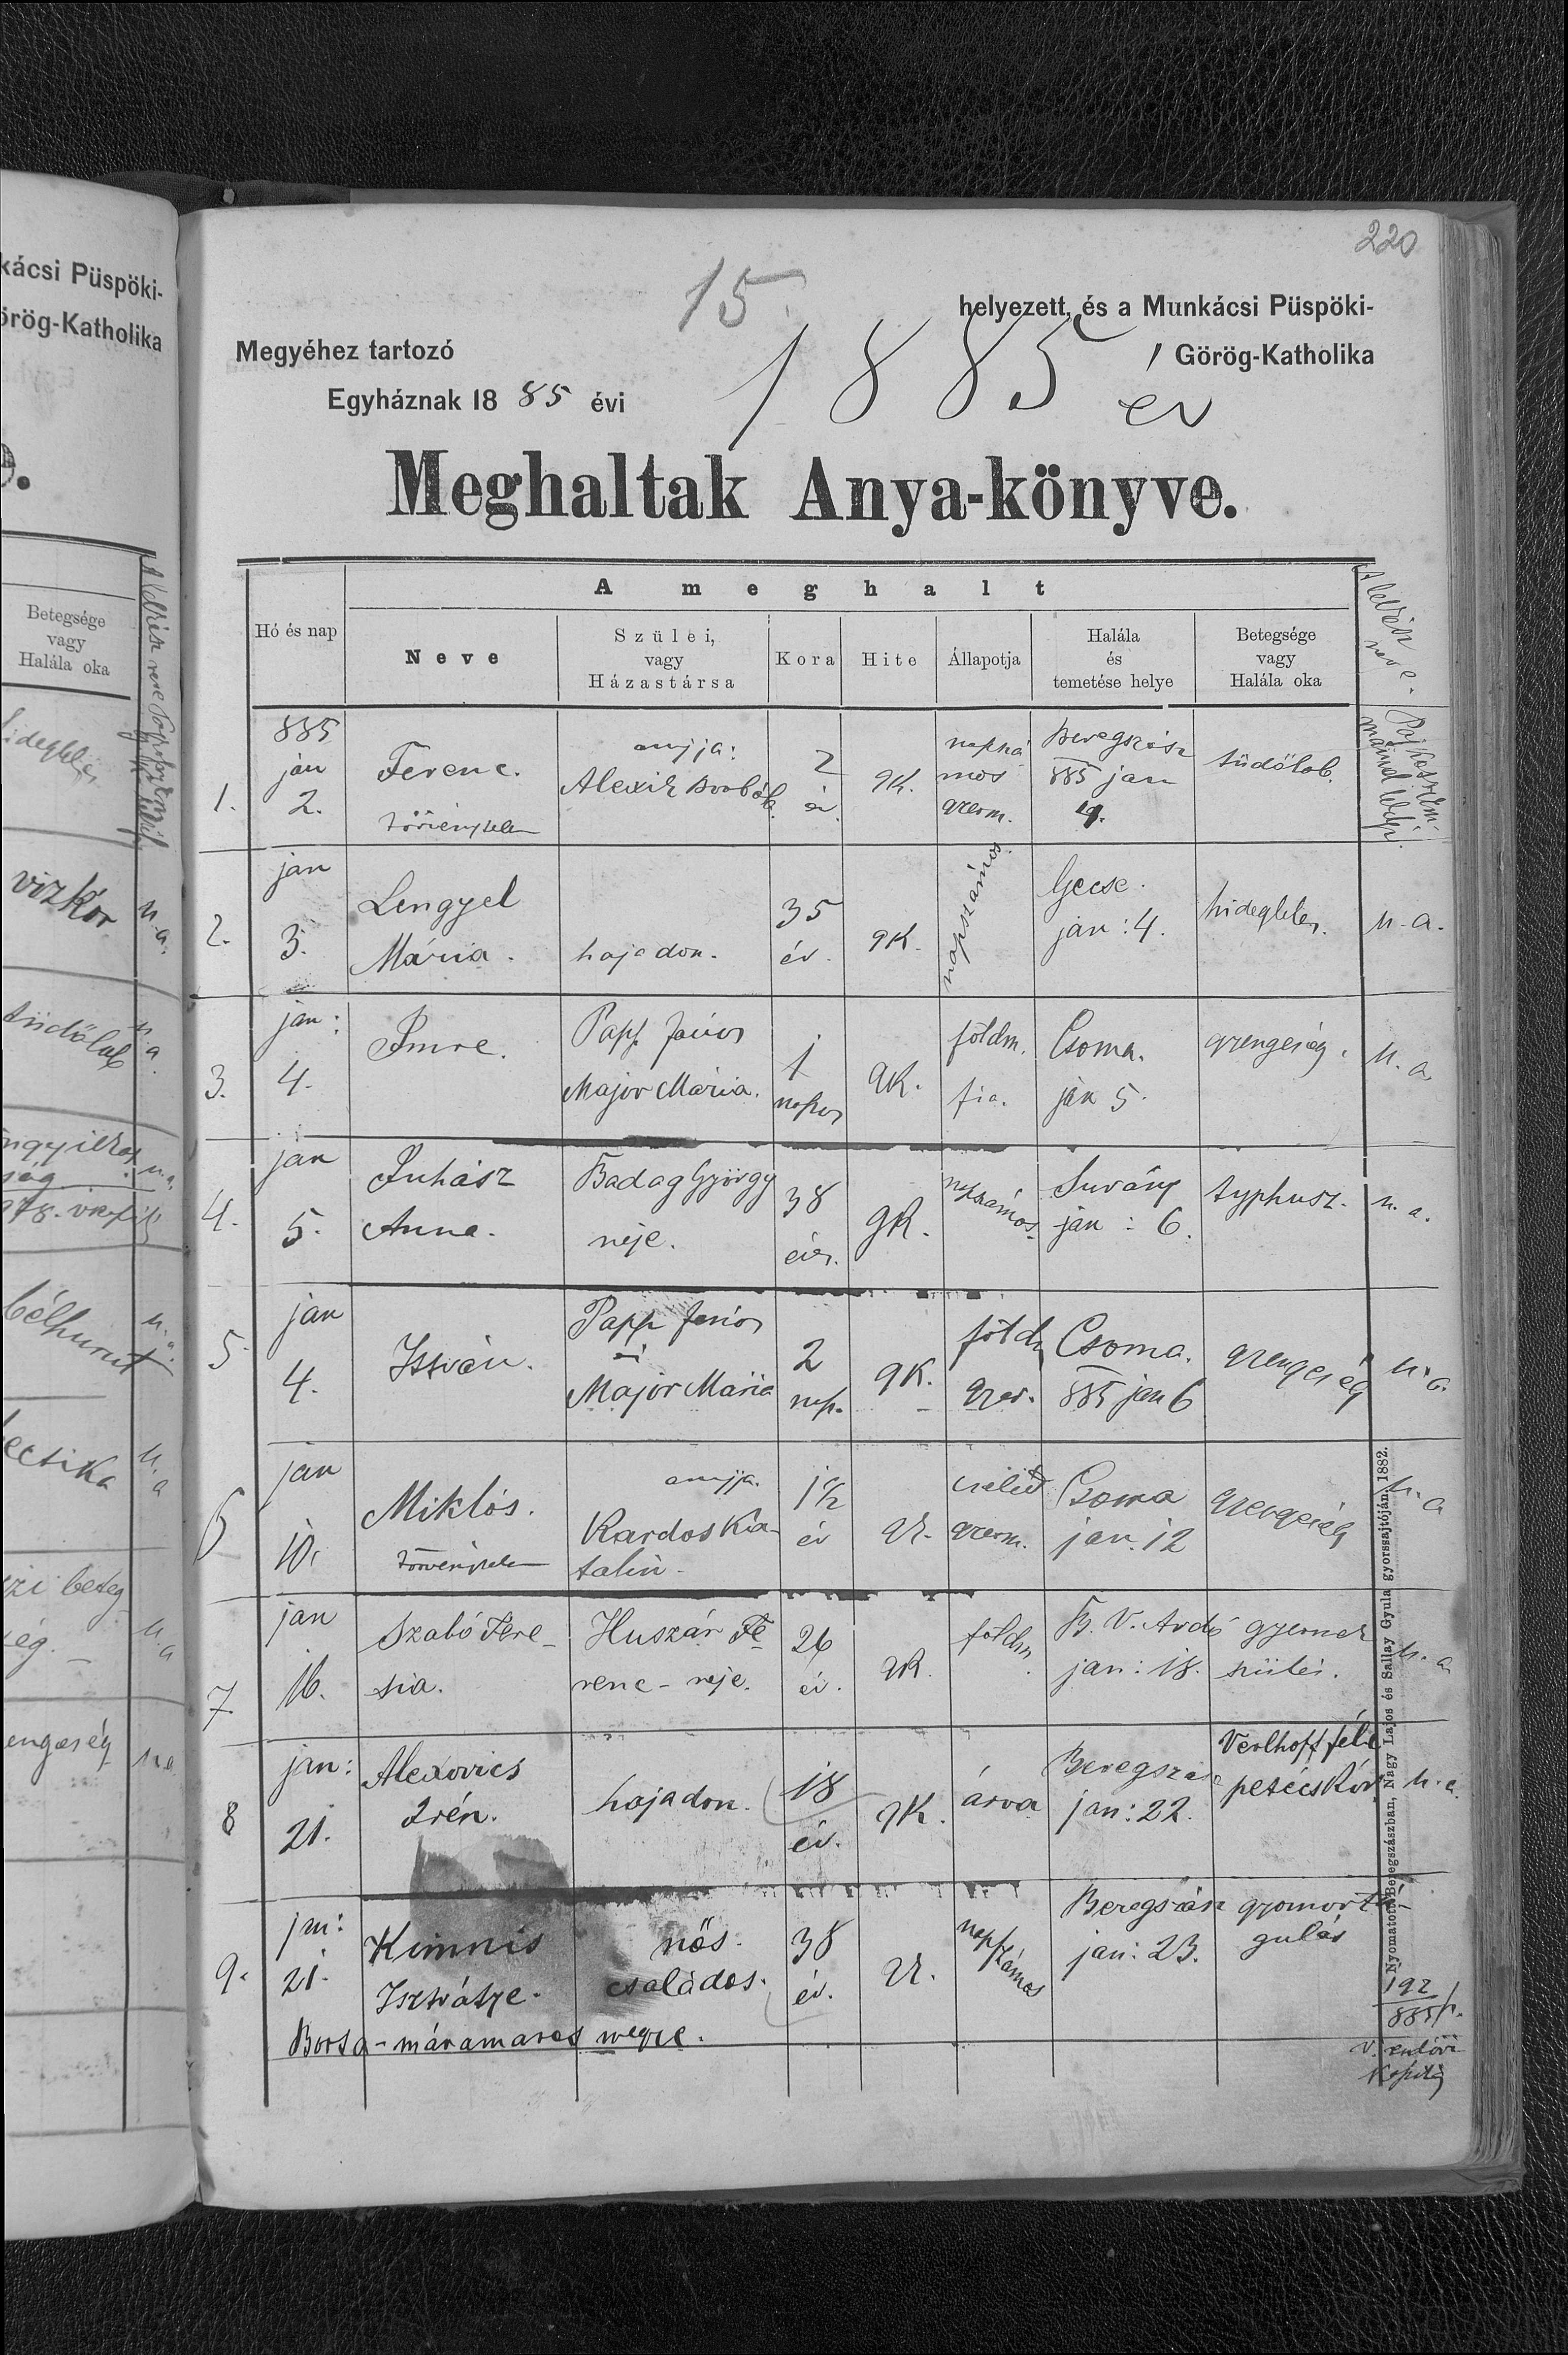 220
15.
helyezett, és a Munkácsi Püspöki-
Megyéhez tartozó
Görög-Katholika
Egyháznak 1885 évi
1885 ev
Meghaltak Anya-könyve.
A meghalt
Hó és nap
Neve
Szülei,
vagy
Házastársa
Kora
Hite
Állapotja
Halála
és
temetése helye
Betegsége
vagy
Halála oka
1.
885
jan
2.
Ferenc.
törvénytelen
anyja:
Alexik Borbála
2
év.
gk.
napszá
mos
gyerm.
Beregszász
885 jan
4.
tüdőlob.
2.
jan
3.
Lengyel
Mária.
hajadon.
35
év.
gk.
napszámos.
Gecse.
jan: 4.
hideglelés.
u. a.
3.
jan:
4.
Imre.
Papp János
Major Mária.
1
napos
gk.
földm.
fia.
Csoma.
jan 5.
gyengeség.
u. a.
4.
jan
5.
Juhász
Anna.
Badag György
neje.
38
éves.
gk.
napszámos.
Surány
jan: 6.
typhusz.
u. a.
5
jan
4.
István.
Papp János
és
Major Mária
2
nap.
gk.
földm
gyer.
Csoma.
885 jan 6
gyengeség
u. a.
6
jan
10.
Miklós.
törvénytelen
anyja.
Kardos Ka-
talin.
1 1/2
év
gk.
cseléd
gyerm.
Csoma
jan. 12
gyengeség
u. a
7.
jan
16.
Szabó Tere-
sia.
Huszár Fe-
renc - neje.
26
év.
gk.
földm.
B. V. Ardó
jan: 18.
gyermek
szülés.
u. a.
8
jan:
21.
Alexovics
Irén.
hajadon.
18
év.
gk.
árva
Beregszász
jan: 22.
Verlhoff féle
petécskór
u. a.
9.
jan:
21.
Kimnis
nős.
családos.
38
év.
gk.
napszámos
Beregszász
jan: 23.
gyomortá-
gulás
Borsa - máramaros megye.
192
885
Nyomatott Beregszászban, Nagy Lajos és Sallay Gyula gyorssajtóján 1882.
kácsi Püspöki-
örög-Katholika
Betegsége
vagy
Halála oka
hideglelés
vizkór
u. a.
tüdőlob
u. a.
bélhurut
u. a.
u. a
u. a
engeség